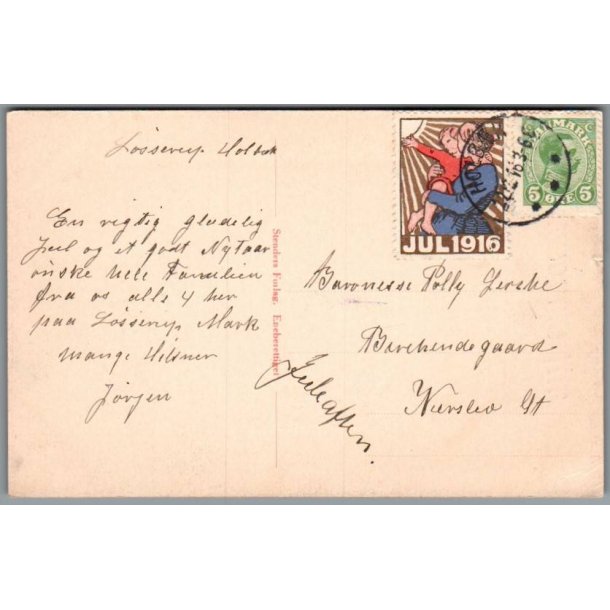 Løsserup Holbæk
En rigtig glædelig
Jul og et godt Nytaar
ønske hele Familien
fra os alle 4 her
paa Løsserup Mark
mange Hilsner
Jørgen
Stenders Forlag. Eneberettiget
Juleaften.
JUL 1916
DANMARK
5 ØRE 5
HOLBÆK
Baronesse Polly Lerche
St